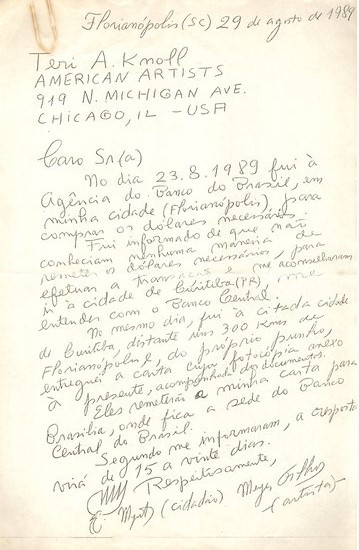 Florianópolis (SC) 29 de agosto de 1989
Teri A. Knoll
AMERICAN ARTISTS
919 N. MICHIGAN AVE.
CHICAGO, IL - USA
Caro Sr(a)
No dia 23.8.1989 fui à
Agência do Banco do Brasil, em
minha cidade (Florianópolis), para
comprar os dólares necessários.
Fui informado de que não
conheciam nenhuma maneira de
remeter os dólares necessários, para
efetuar a transação e me aconselharam
ir à cidade de Curitiba (PR), me
entender com o Banco Central.
No mesmo dia, fui à citada cidade
de Curitiba, distante uns 300 Kms de
Florianópolis e, do próprio punho,
entreguei a carta cuja fotocópia anexo
à presente, acompanhada do documentos.
Eles remeterão a minha carta para
Brasília, onde fica a sede do Banco
Central do Brasil.
Segundo me informaram, a resposta
virá de 15 a vinte dias.
Respeitosamente,
(cidadão) Meyer Filho
(artista)